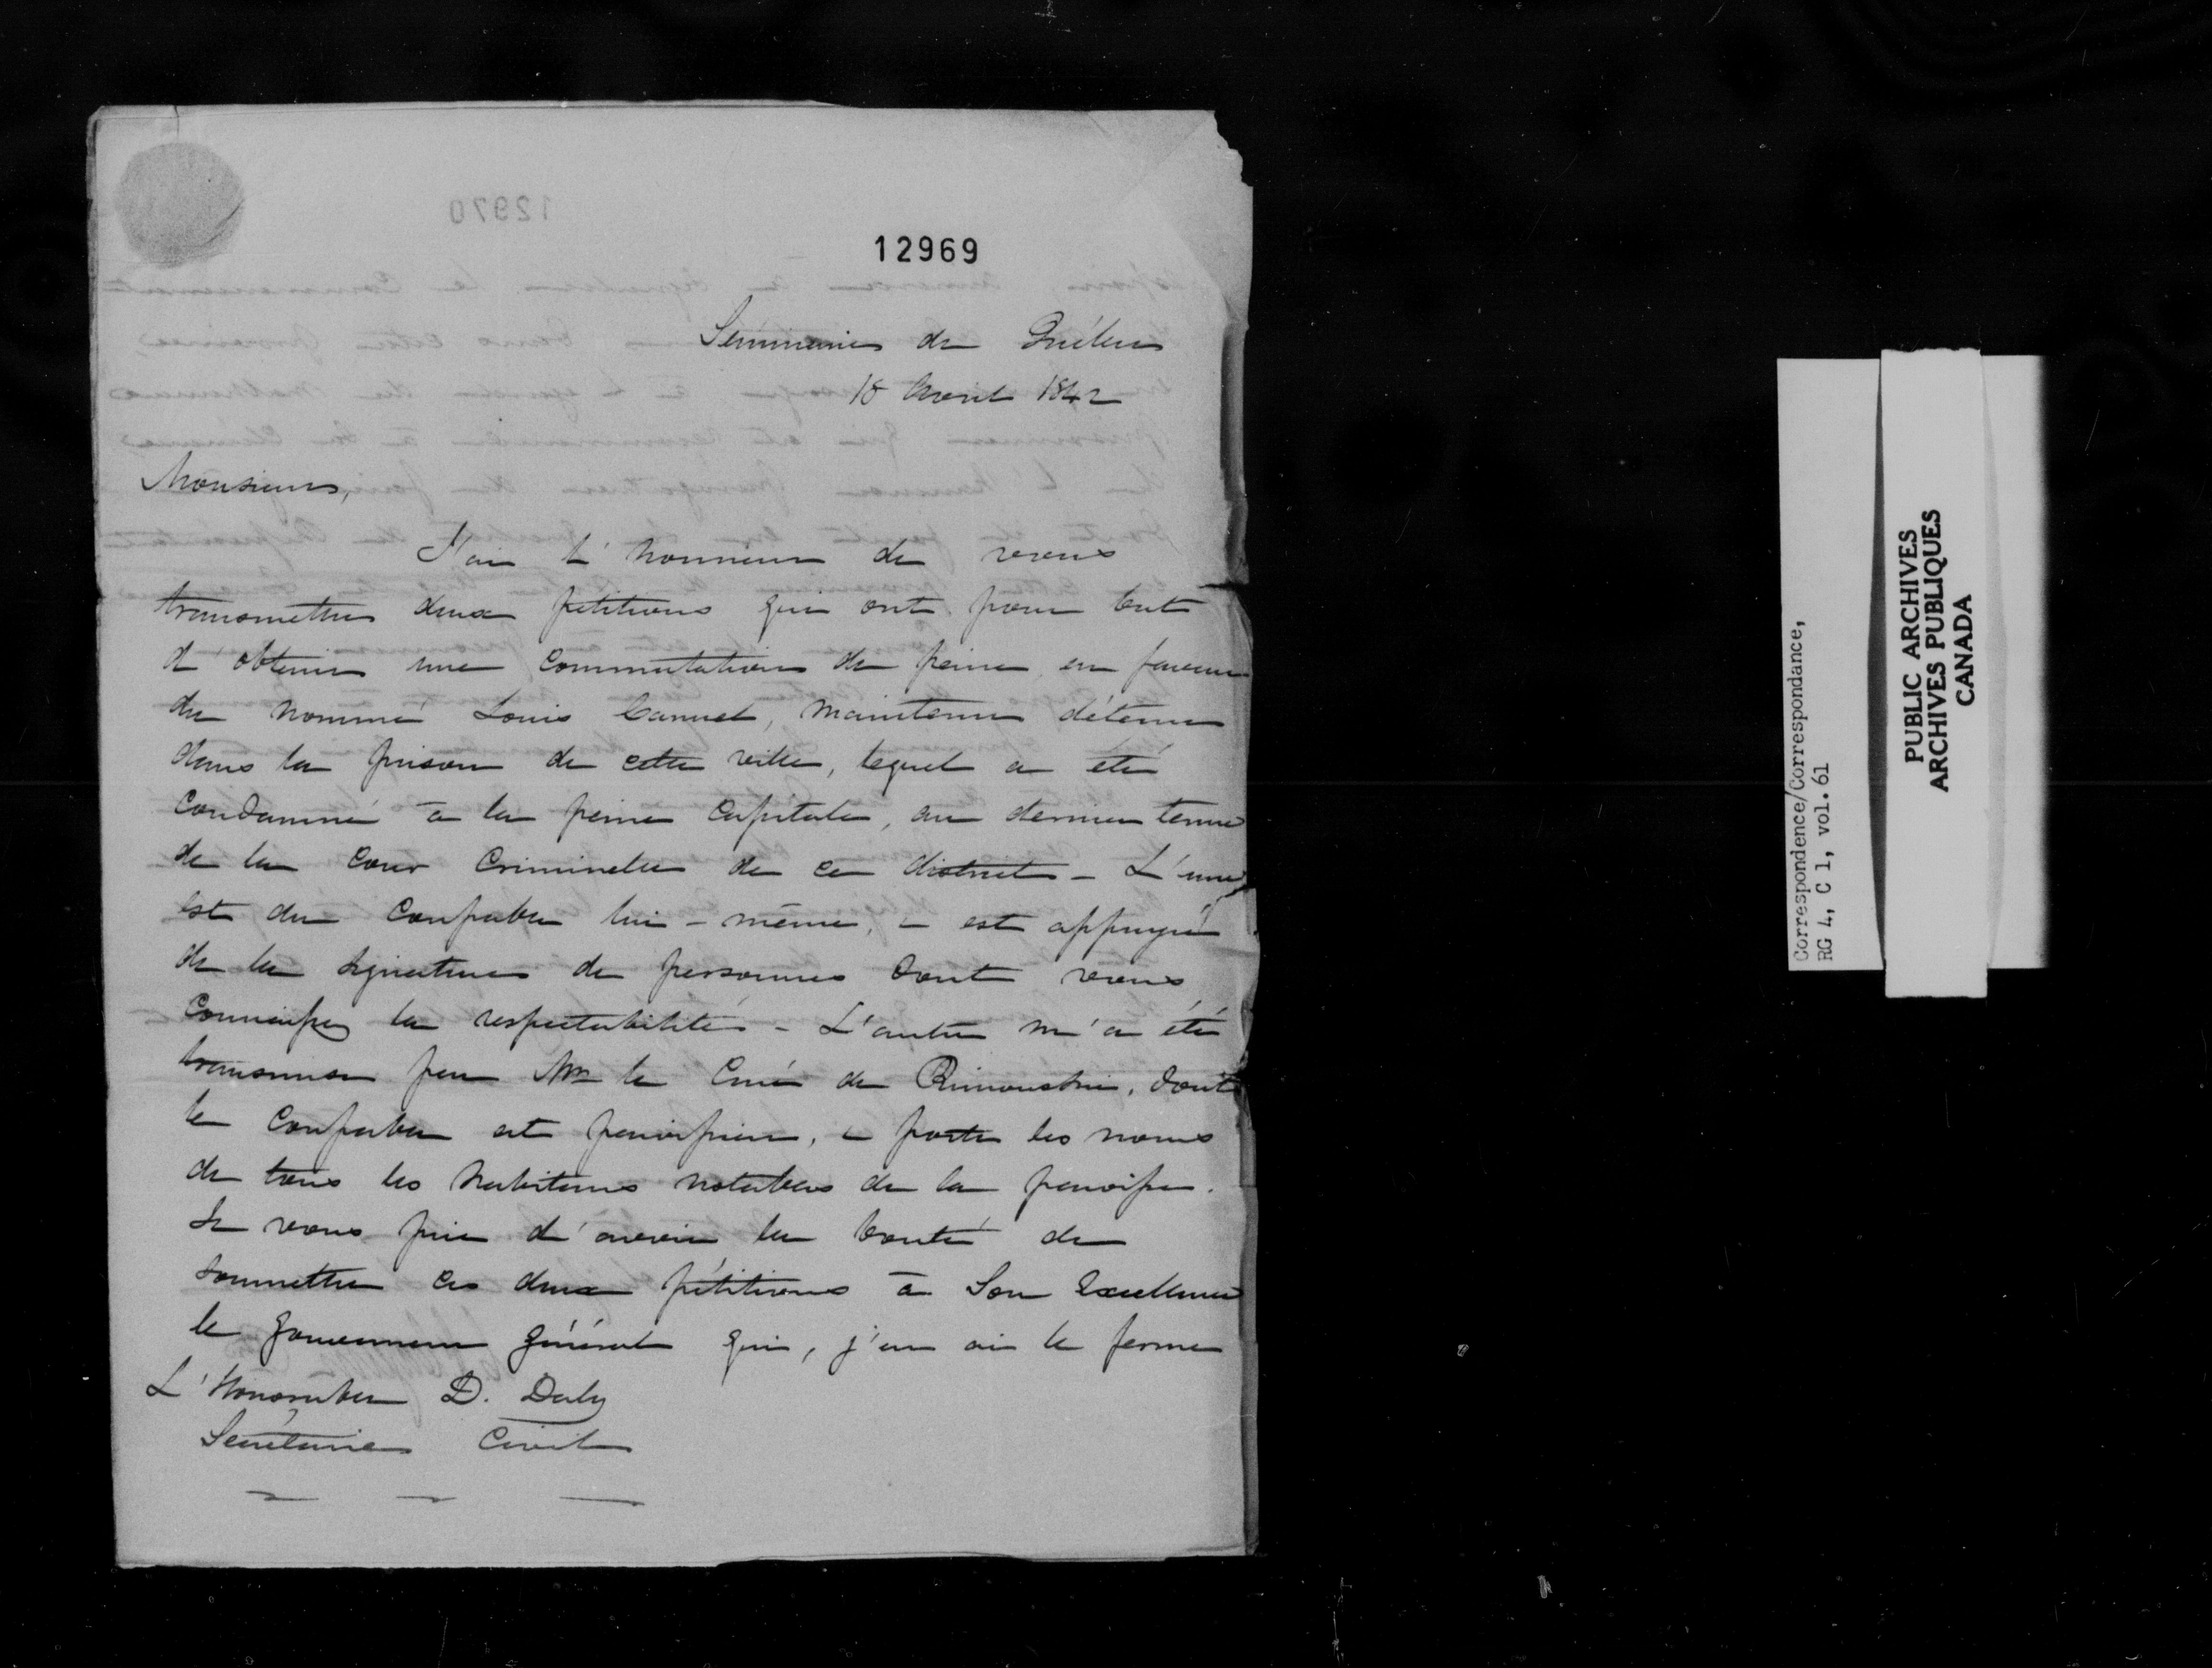 12970
12969
Séminaire de Québec
18 Avril 1842
Monsieur,
J'ai l'honneur de vous
transmettre deux petitions qui ont pour but
d'obtenir une commutation de peine en faveur
du nommé Louis Cannel, maintenu détenu
dans la prison de cette ville, lequel a été
Condamné à la peine Capitale, au dernier terme
de la Cour Criminelle de ce district - L'une
est du Coupable lui-même, & est appuyé
de la signature de personnes dont vous
Connaissez la respectabilité - L'autre m'a été
transmise par Mr le Curé de Rimouski, dont
le Coupable est paroissien, & porte les noms
de tous les habitans notables de la paroisse.
Je vous prie d'avoir la bonté de
soumettre ces deux pétitions à Son Excellence
le Gouverneur Général qui, j'en ai le ferme
L'Honorable D. Daly
Secrétaire Civil
Correspondence/Correspondance,
RG 4, C 1, vol. 61
PUBLIC ARCHIVES
ARCHIVES PUBLIQUES
CANADA